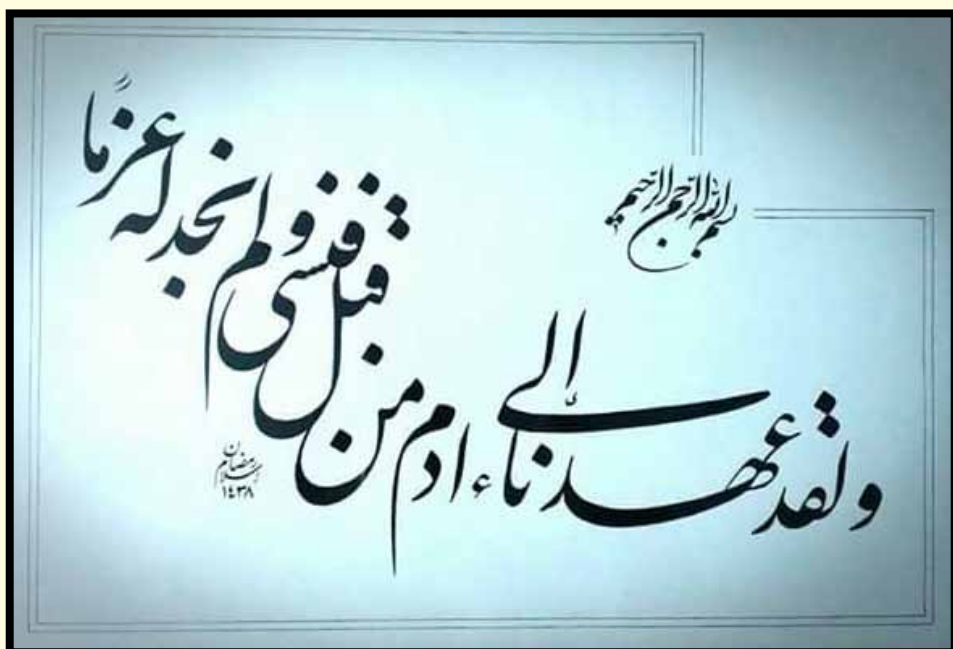 بسم الله الرحمن الرحيم
ولقد عهدنا إلى ءادم من قبل فنسي ولم نجد له عزمًا
رمضان
١٤٣٨